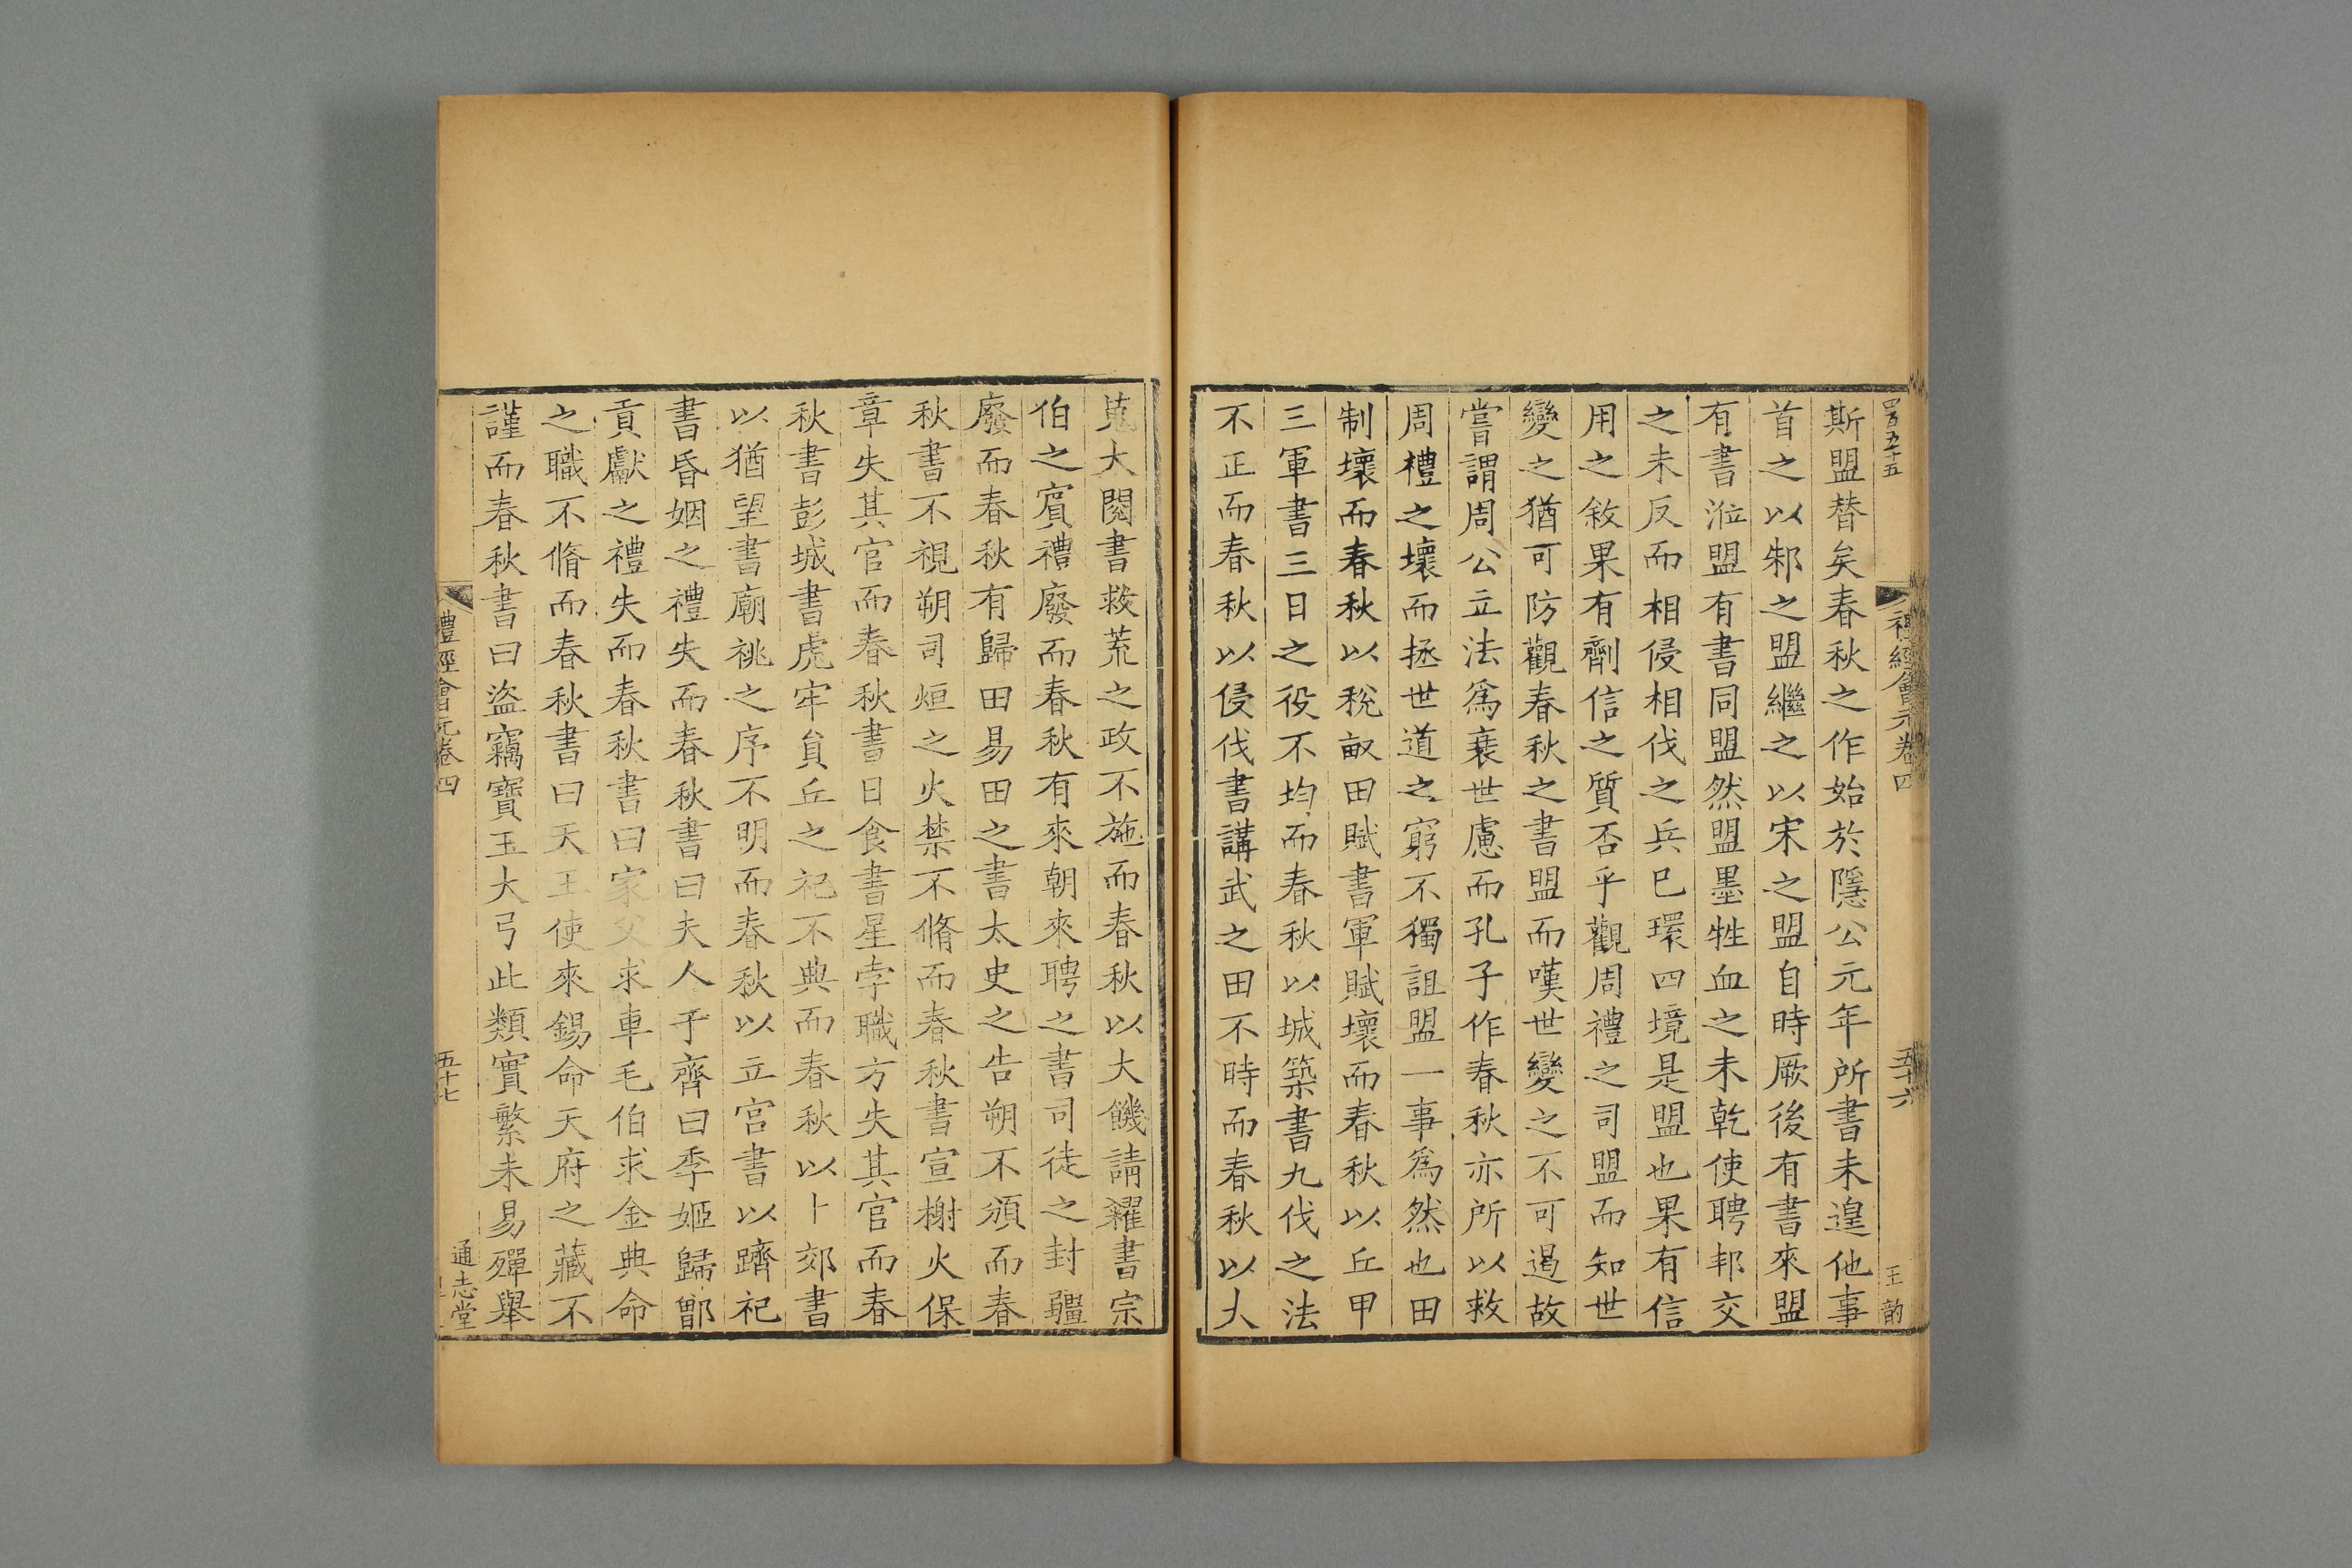 四百五十五
禮經會元卷四
五十六
王 韵
斯盟替矣春秋之作始於隱公元年所書未遑他事
首之以邾之盟繼之以宋之盟自時厥後有書來盟
有書涖盟有書同盟然盟墨牲血之未乾使聘邦交
之未反而相侵相伐之兵已環四境是盟也果有信
用之敘果有劑信之質否乎觀周禮之司盟而知世
變之猶可防觀春秋之書盟而嘆世變之不可遏故
嘗謂周公立法爲衰世慮而孔子作春秋亦所以救
周禮之壞而拯世道之窮不獨詛盟一事爲然也田
制壞而春秋以稅畝田賦書軍賦壞而春秋以丘甲
三軍書三日之役不均而春秋以城築書九伐之法
不正而春秋以侵伐書講武之田不時而春秋以大
蒐大閱書救荒之政不施而春秋以大饑請糴書宗
伯之賓禮廢而春秋有來朝來聘之書司徒之封疆
廢而春秋有歸田易田之書太史之告朔不頒而春
秋書不視朔司烜之火禁不脩而春秋書宣榭火保
章失其官而春秋書日食書星孛職方失其官而春
秋書彭城書虎牢負丘之祀不典而春秋以卜郊書
以猶望書廟祧之序不明而春秋以立宮書以躋祀
書昏姻之禮失而春秋書曰夫人于齊曰季姬歸鄫
貢獻之禮失而春秋書曰家父求車毛伯求金典命
之職不脩而春秋書曰天王使來錫命天府之藏不
謹而春秋書曰盜竊寶玉大弓此類實繁未易殫舉
禮經會元卷四
五十七
通志堂